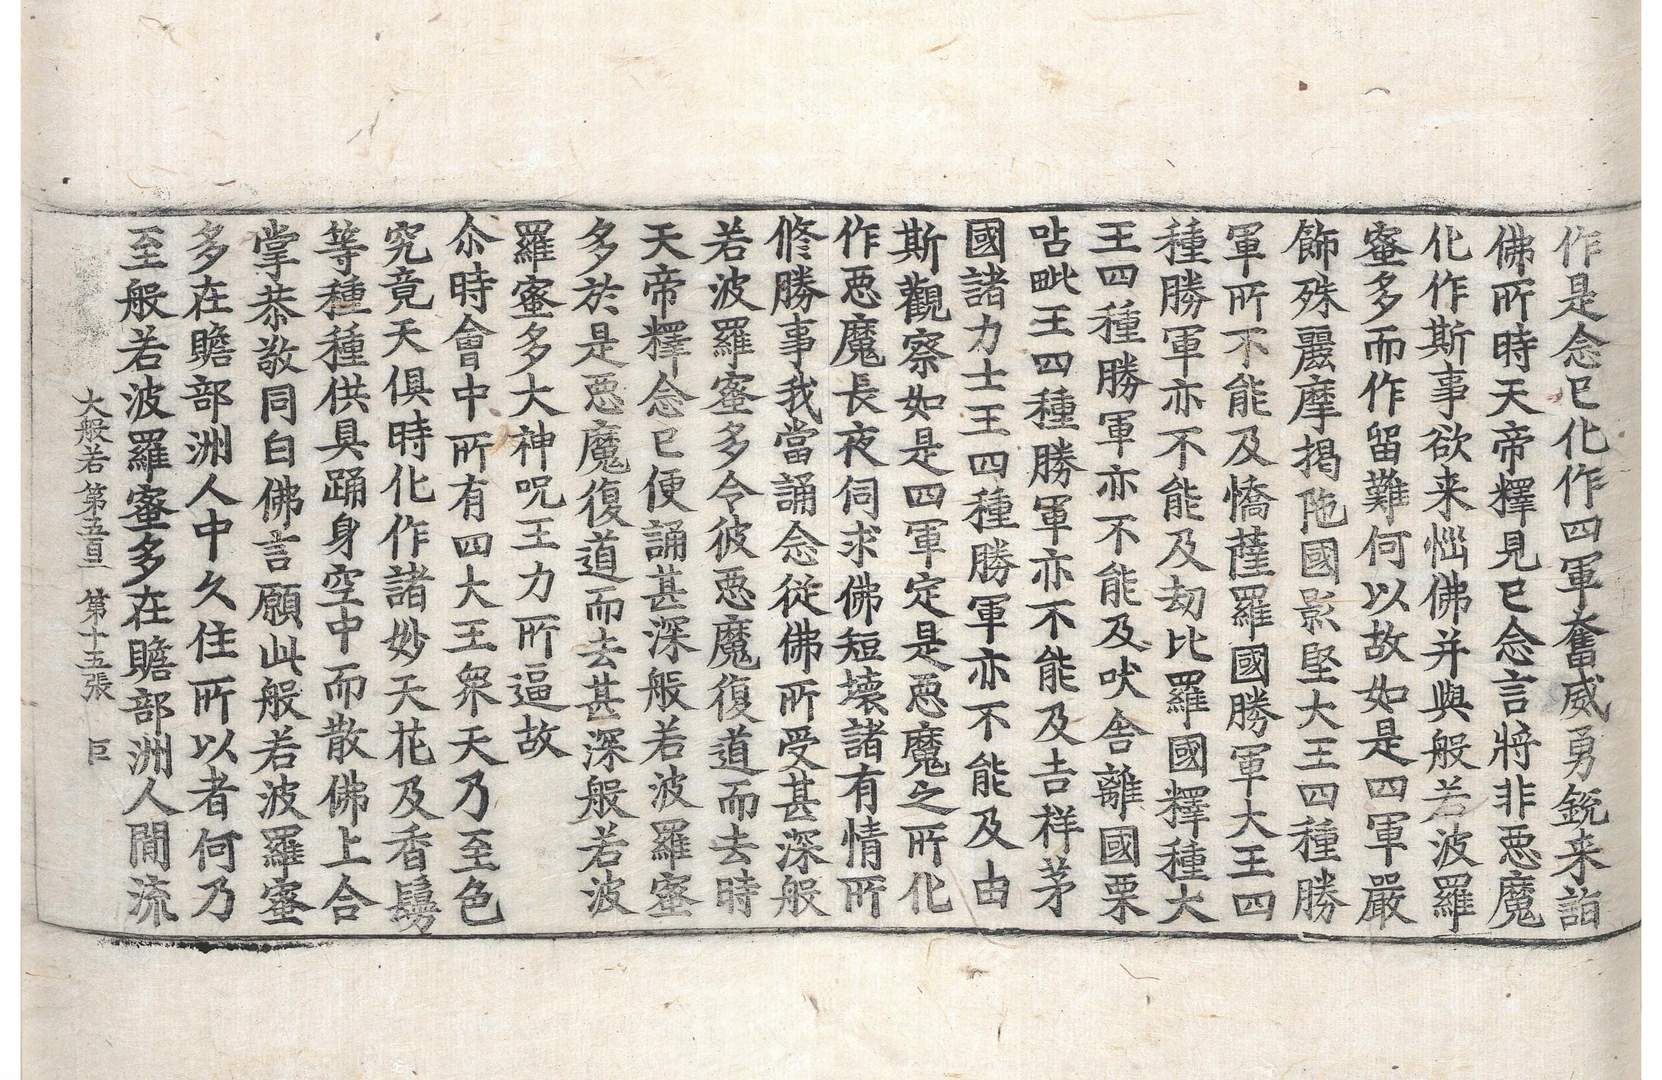 作是念已化作四軍奮威勇銳来詣
佛所時天帝釋見已念言將非惡魔
化作斯事欲来惱佛并與般若波羅
蜜多而作留難何以故如是四軍嚴
飾殊麗摩揭陁國影堅大王四種勝
軍所不能及憍薩羅國勝軍大王四
種勝軍亦不能及劫比羅國釋種大
王四種勝軍亦不能及吠舍離國栗
呫毗王四種勝軍亦不能及吉祥茅
國諸力士王四種勝軍亦不能及由
斯觀察如是四軍定是惡魔之所化
作惡魔長夜伺求佛短壞諸有情所
修勝事我當誦念從佛所受甚深般
若波羅蜜多令彼惡魔復道而去時
天帝釋念已便誦甚深般若波羅蜜
多於是惡魔復道而去甚深般若波
羅蜜多大神呪王力所逼故
尒時會中所有四大王衆天乃至色
究竟天俱時化作諸妙天花及香鬘
等種種供具踊身空中而散佛上合
掌恭敬同白佛言願此般若波羅蜜
多在贍部洲人中久住所以者何乃
至般若波羅蜜多在贍部洲人間流
大般若第五百一 第十五張 巨